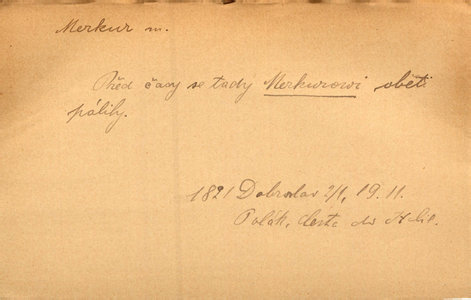 Merkur m.
Před časy se tady Merkurowi oběti
pálily.
1821 Dobroslav 2/1, 19. 11.
Polák, Cesta do Italie.